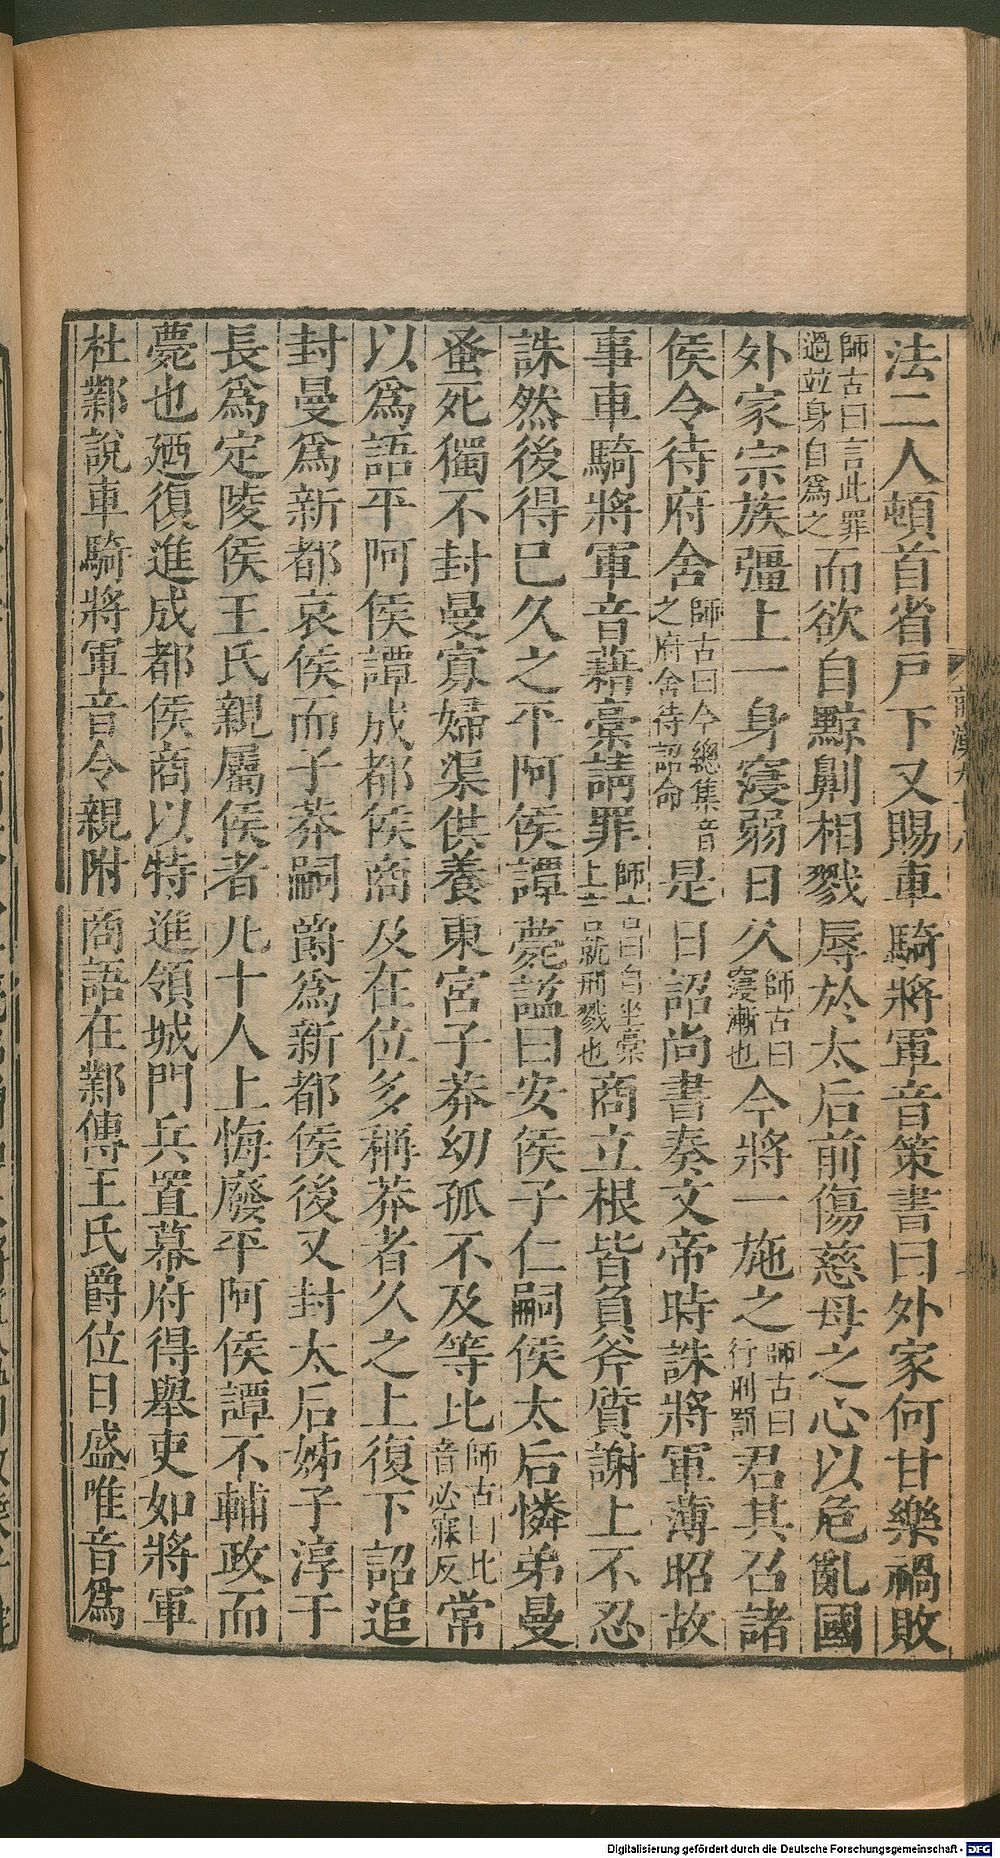 法二人頓首省戶下又賜車騎將軍音策書曰外家何甘樂禍敗
師古曰言此罪過並身自爲之而欲自黥劓相戮辱於太后前傷慈母之心以危亂國
外家宗族彊上一身寖弱日久師古曰寖漸也今將一施之師古曰行刑罰君其召諸
侯令待府舍師古曰令總集音之府舍待詔命是日詔尚書奏文帝時誅將軍薄昭故
事車騎將軍音藉槀請罪師古曰自坐槀上言就刑戮也商立根皆負斧質謝上不忍
誅然後得已久之平阿侯譚薨諡曰安侯子仁嗣侯太后憐弟曼
蚤死獨不封曼寡婦渠供養東宮子莽幼孤不及等比師古曰比音必寐反常
以爲語平阿侯譚成都侯商及在位多稱莽者久之上復下詔追
封曼爲新都哀侯而子莽嗣爵爲新都侯後又封太后姊子淳于
長爲定陵侯王氏親屬侯者凡十人上悔廢平阿侯譚不輔政而
薨也廼復進成都侯商以特進領城門兵置幕府得舉吏如將軍
杜鄴說車騎將軍音令親附商語在鄴傳王氏爵位日盛唯音爲
Digitalisierung gefördert durch die Deutsche Forschungsgemeinschaft - DFG